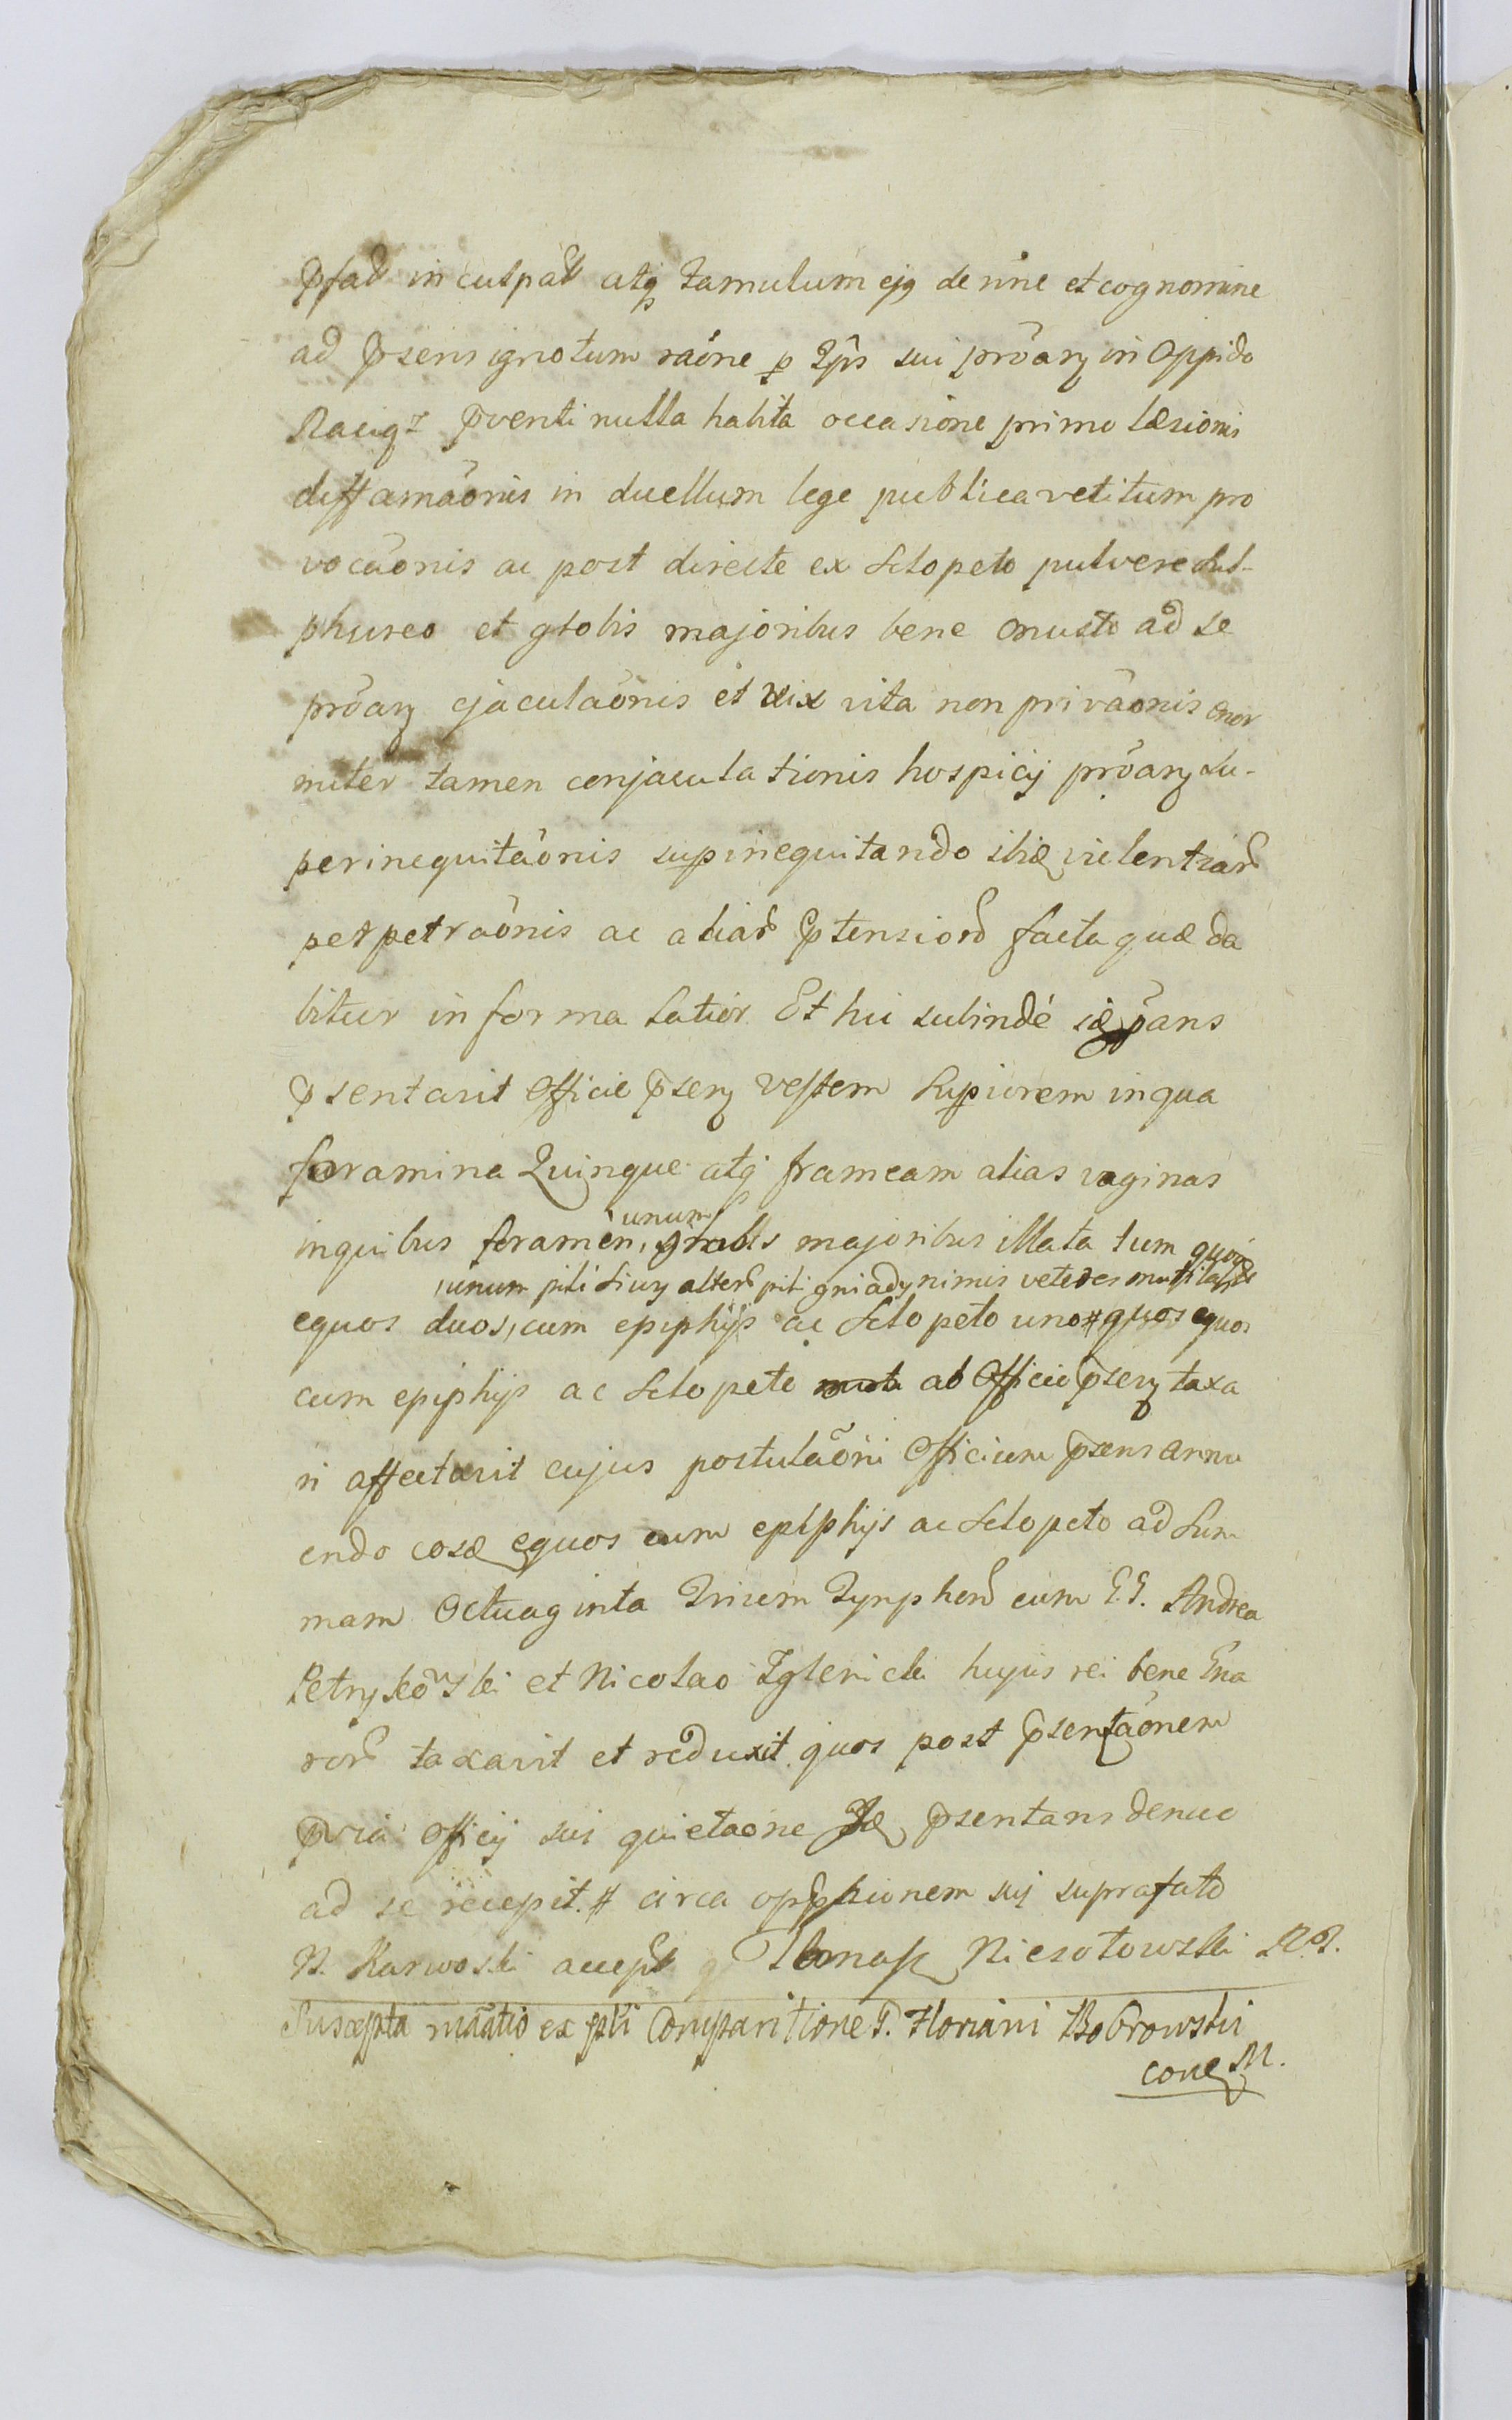 pfat inculpat atq famulum ejq de nne et cognomine
ad psens ignotum raõne p Ips sui prõanz in Oppido
Raciqz pventi nulla habita occasione primo læsionis
diffamaõnis in duellum lege publica vetitum pro
vocaõnis ac post directe ex Sclopeto pulvere Sul-
phureo et globis majoribus bene onusto ad se
prõanz ejaculaõnis et vix vita non privaõnis enor
miter tamen conjaculationis hospicij prõanz su-
perinequitaõnis supinequitando ibiq violentiar
perpetraõnis ac aliar ptensior facta quæ da
bitur in forma latior. Et hic subinde iq põans
psentavit Officio psenz vestem Supiorem in qua
foramina Quinque atq frameam alias vaginas
in quibus foramen, unum globis majoribus illata tum quoq
unum pili siwy alter pili gniady nimis veteres
equos duos, cum epiphijs ac Sclopeto uno # quos equos
cum epiphijs ac Sclopeto ab Officio psenz taxa
ri affectavit cujus postulaõni Officium psens annu
endo eosq equos cum epiphijs ac Sclopeto ad Sum
mam Octuaginta Trium Tynphor cum G.G. Andrea
Petrykowski et Nicolao Iglenicki hujus rei bene Gna
ror taxavit et reduxit quos post psentaõnem
pvia Officij sui quietaõne Iq psentans denuo
ad se recepit. # circa oppionem sui suprafato
N. Karwoski accept Thomasz Niesołowski
Suscepta mãtio ex psli Comparitione G. Floriani Bobrowski
M.